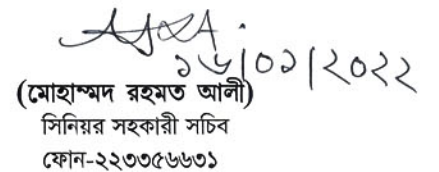 ১৬/০১/২০২২
(মোহাম্মদ রহমত আলী)
সিনিয়র সহকারী সচিব
ফোন-২২৩৩৫৬৬৩১